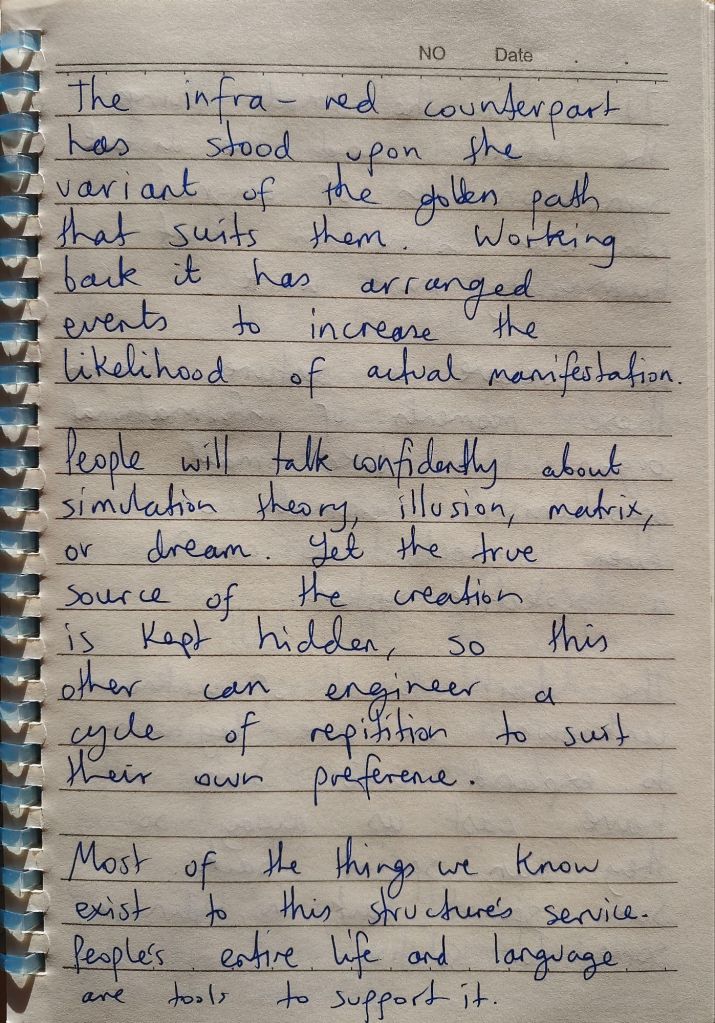 NO Date . .
The infra-red counterpart
has stood upon the
variant of the golden path
that suits them. Working
back it has arranged
events to increase the
likelihood of actual manifestation.
People will talk confidently about
simulation theory, illusion, matrix,
or dream. Yet the true
source of the creation
is kept hidden, so this
other can engineer a
cycle of repitition to suit
their own preference.
Most of the things we know
exist to this structure's service.
People's entire life and language
are tools to support it.